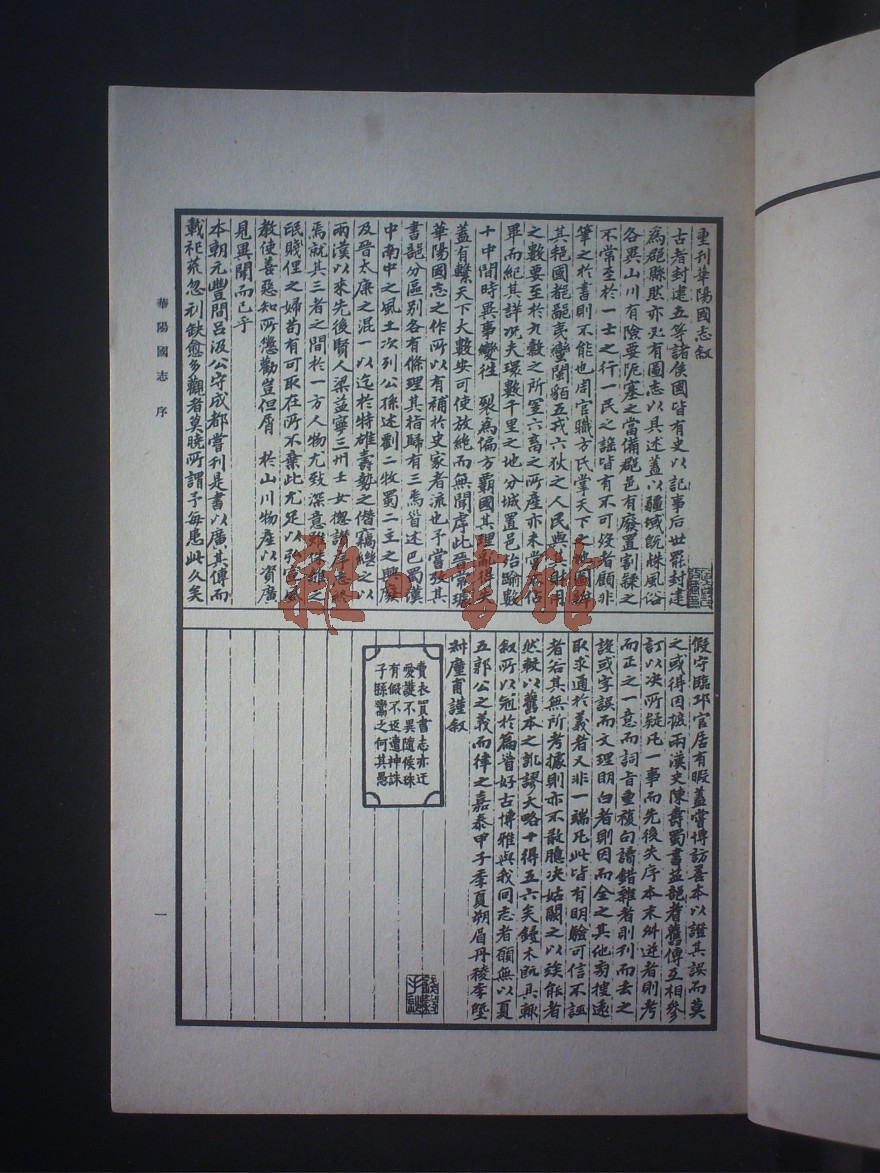 重刊華陽國志叙
古者封建五等諸侯國皆有史以記事后世罷封建
為郡縣然亦必有圖志以具述蓋以疆域既殊風俗
各異山川有險要阨塞之當備郡邑有廢置割隸之
不常至於一士之行一民之謠皆有不可没者顧非
筆之於書則不能也周官職方氏掌天下之地圖辨
其邦國都鄙夷蠻閩貉五戎六狄之人民與其財用
之數要至於九穀之所宜六畜之所產亦未嘗不占
畢而紀其詳况夫環數千里之地分城置邑殆踰數
十中間時異事變往 裂為偏方霸國其理亂得失
蓋有繫天下大數安可使放絶而無聞乎此晉常璩
華陽國志之作所以有補於史家者流也予嘗攷其
書部分區别各有條理其指歸有三焉首述巴蜀漢
中南中之風土次列公孫述劉二牧蜀二主之興廢
及晉太康之混一以迄於特雄壽勢之僭竊繼之以
兩漢以來先後賢人梁益寧三州士女總讃序志終
焉就其三者之間於一方人物尤致深意雖侏離之
氓賤俚之婦苟有可取在所不棄此尤足以弘宣風
教使善惡知所懲勸豈但屑 於山川物產以資廣
見異聞而已乎
本朝元豐間吕汲公守成都嘗刊是書以廣其傳而
載祀荒忽刓缺愈多觀者莫曉所謂予每患此久矣
假守臨邛官居有暇蓋嘗博訪善本以證其誤而莫
之或得因摭兩漢史陳壽蜀書益部耆舊傳互相參
訂以决所疑凡一事而先後失序本末舛逆者則考
而正之一意而詞旨重複句讀錯雜者則刊而去之
設或字誤而文理明白者則因而全之其他旁搜遠
取求通於義者又非一端凡此皆有明驗可信不誣
者若其無所考據則亦不敢臆决姑闕之以俟能者
然較以舊本之訛謬大略十得五六矣鋟木既具輒
叙所以冠於篇首好古博雅與我同志者願無以夏
五郭公之義而律之嘉泰甲子季夏朔眉丹稜李㙓
叔廑甫謹叙
賣衣買書志亦迂
愛護不異隨侯珠
有假不返遭神誅
子孫鬻之何其愚
華陽國志 序
一